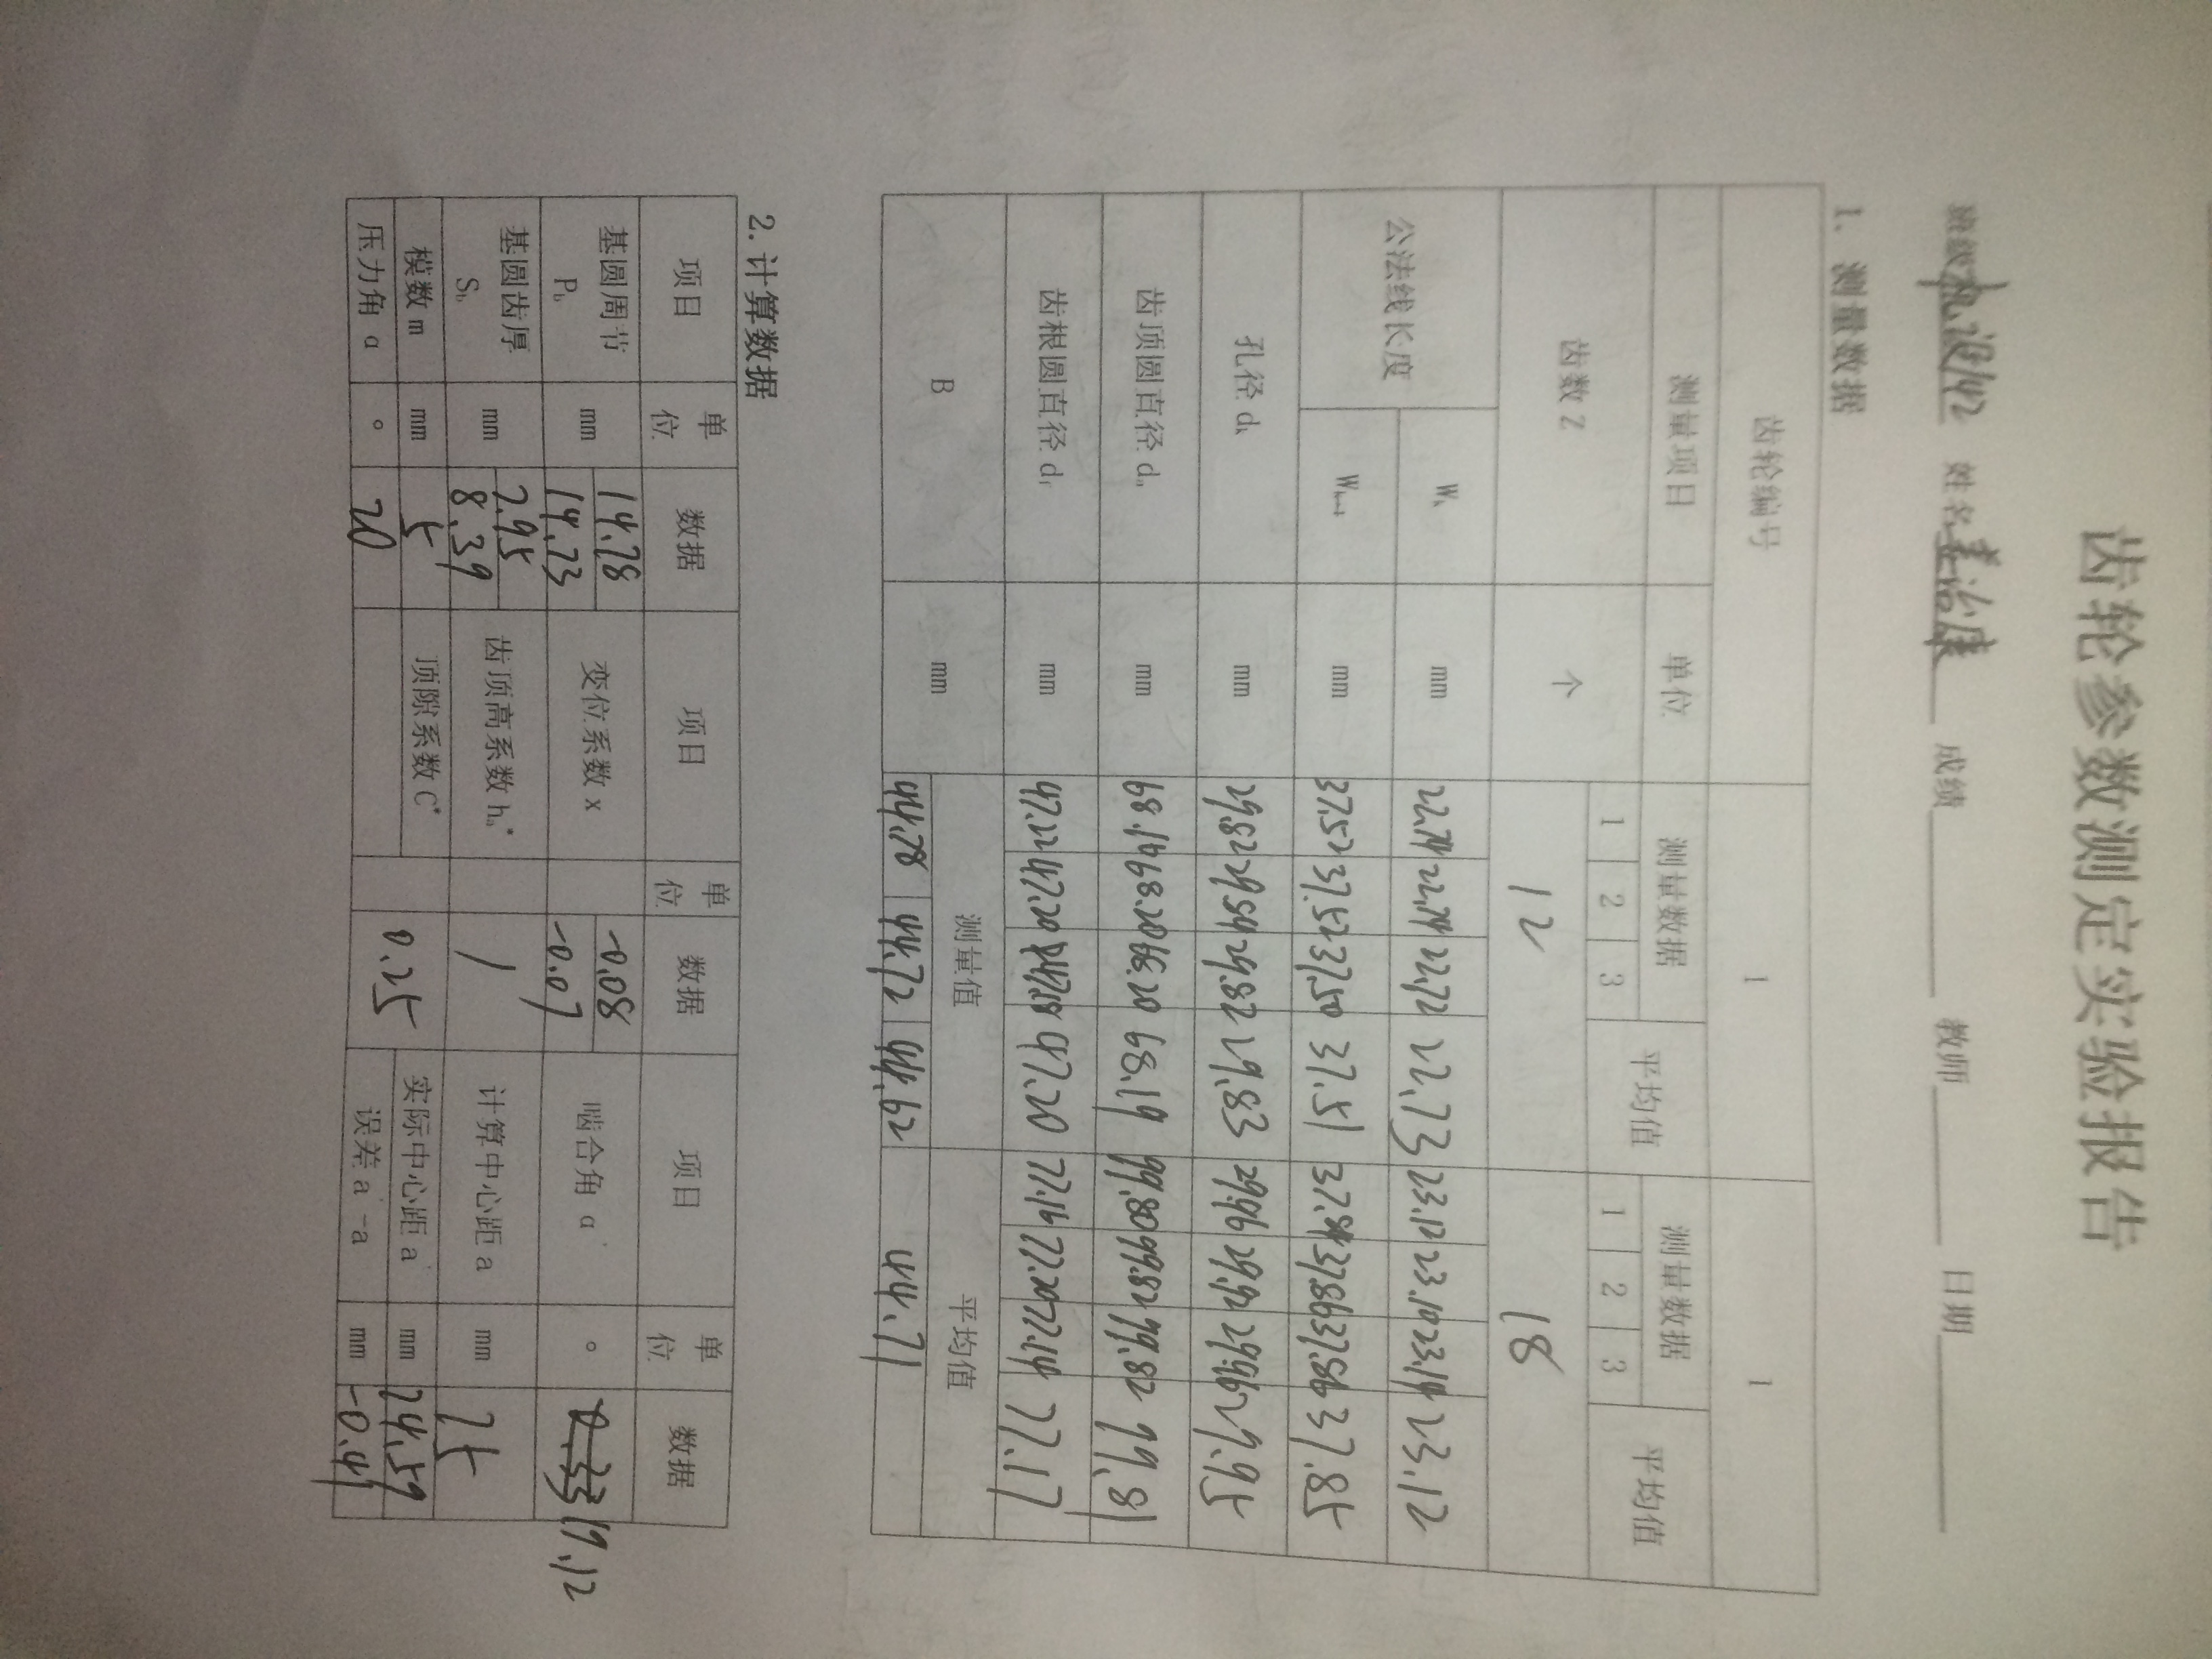 齿轮参数测定实验报告
班级 机设142 姓名 成绩 教师 日期
1、测量数据
齿轮编号 1 1
测量项目 单位 测量数据 平均值 测量数据 平均值
1 2 3 1 2 3
齿数 Z 个 12 18
公法线长度 Wk mm 22.74 22.74 22.72 22.73 23.12 23.10 23.14 23.12
Wk+1 mm 37.52 37.52 37.50 37.51 37.84 37.86 37.86 37.85
孔径 dk mm 29.82 29.84 29.82 29.83 29.96 29.92 29.96 29.95
齿顶圆直径 da mm 68.14 68.20 68.20 68.19 99.80 99.82 99.82 99.81
齿根圆直径 df mm 47.22 47.20 47.18 47.20 77.16 77.20 77.14 77.17
B mm 测量值 平均值
44.78 44.72 44.62 44.71
2. 计算数据
项目 单位 数据 项目 单位 数据 项目 单位 数据
基圆周节 Pb mm 14.78 14.73 变位系数 x -0.08 -0.07 啮合角 α' ° 19.12
基圆齿厚 Sb mm 7.95 8.39 齿顶高系数 ha* 1 计算中心距 a mm 75
模数 m mm 5 顶隙系数 C* 0.25 实际中心距 a' mm 74.59
压力角 α ° 20 误差 a'-a mm -0.41